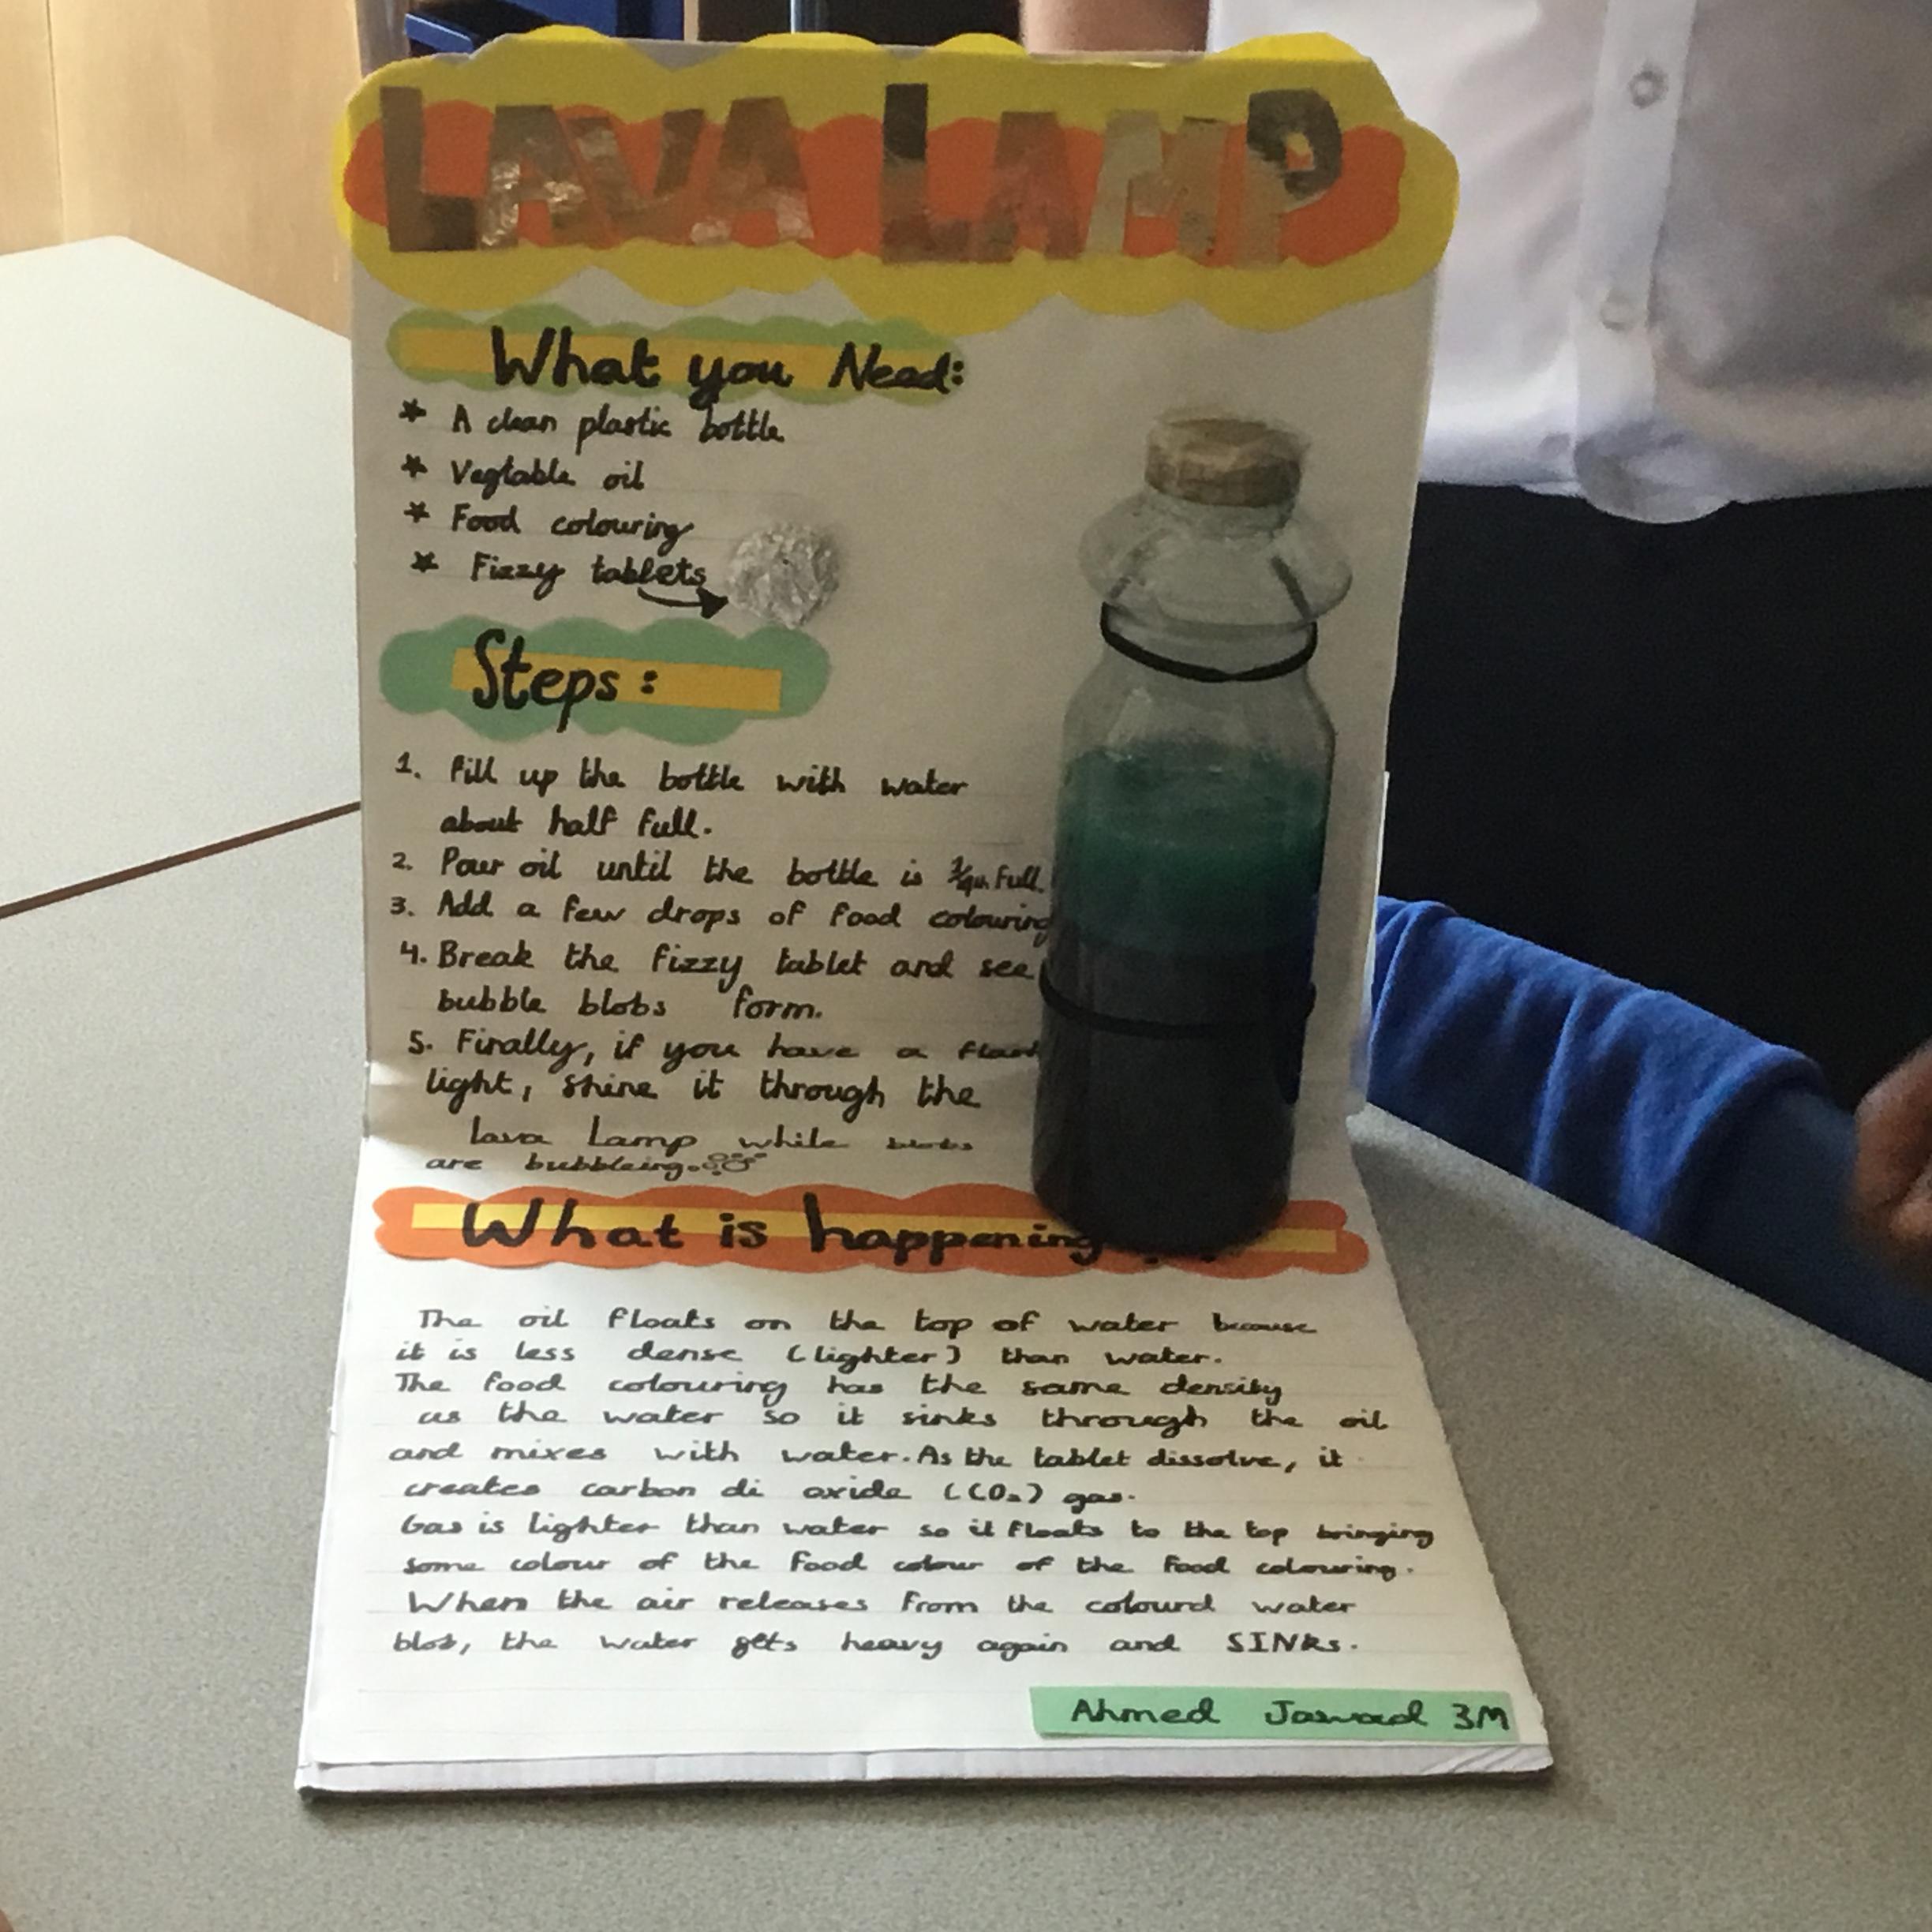 LAVA LAMP
What you Need:
* A clean plastic bottle
* Vegtable oil
* Food colouring
* Fizzy tablets
Steps:
1. Fill up the bottle with water
about half full.
2. Pour oil until the bottle is full.
3. Add a few drops of food colouring
4. Break the fizzy tablet and see
bubble blobs form.
5. Finally, if you have a flash
light, shine it through the
lava Lamp while blobs
are bubbleing.
What is happening
The oil floats on the top of water because
it is less dense (lighter) than water.
The food colouring has the same density
as the water so it sinks through the oil
and mixes with water. As the tablet dissolve, it
creates carbon di oxide (CO₂) gas.
Gas is lighter than water so it floats to the top bringing
some colour of the food colour of the food colouring.
When the air releases from the colourd water
blob, the water gets heavy again and SINKs.
Ahmed Jawad 3M